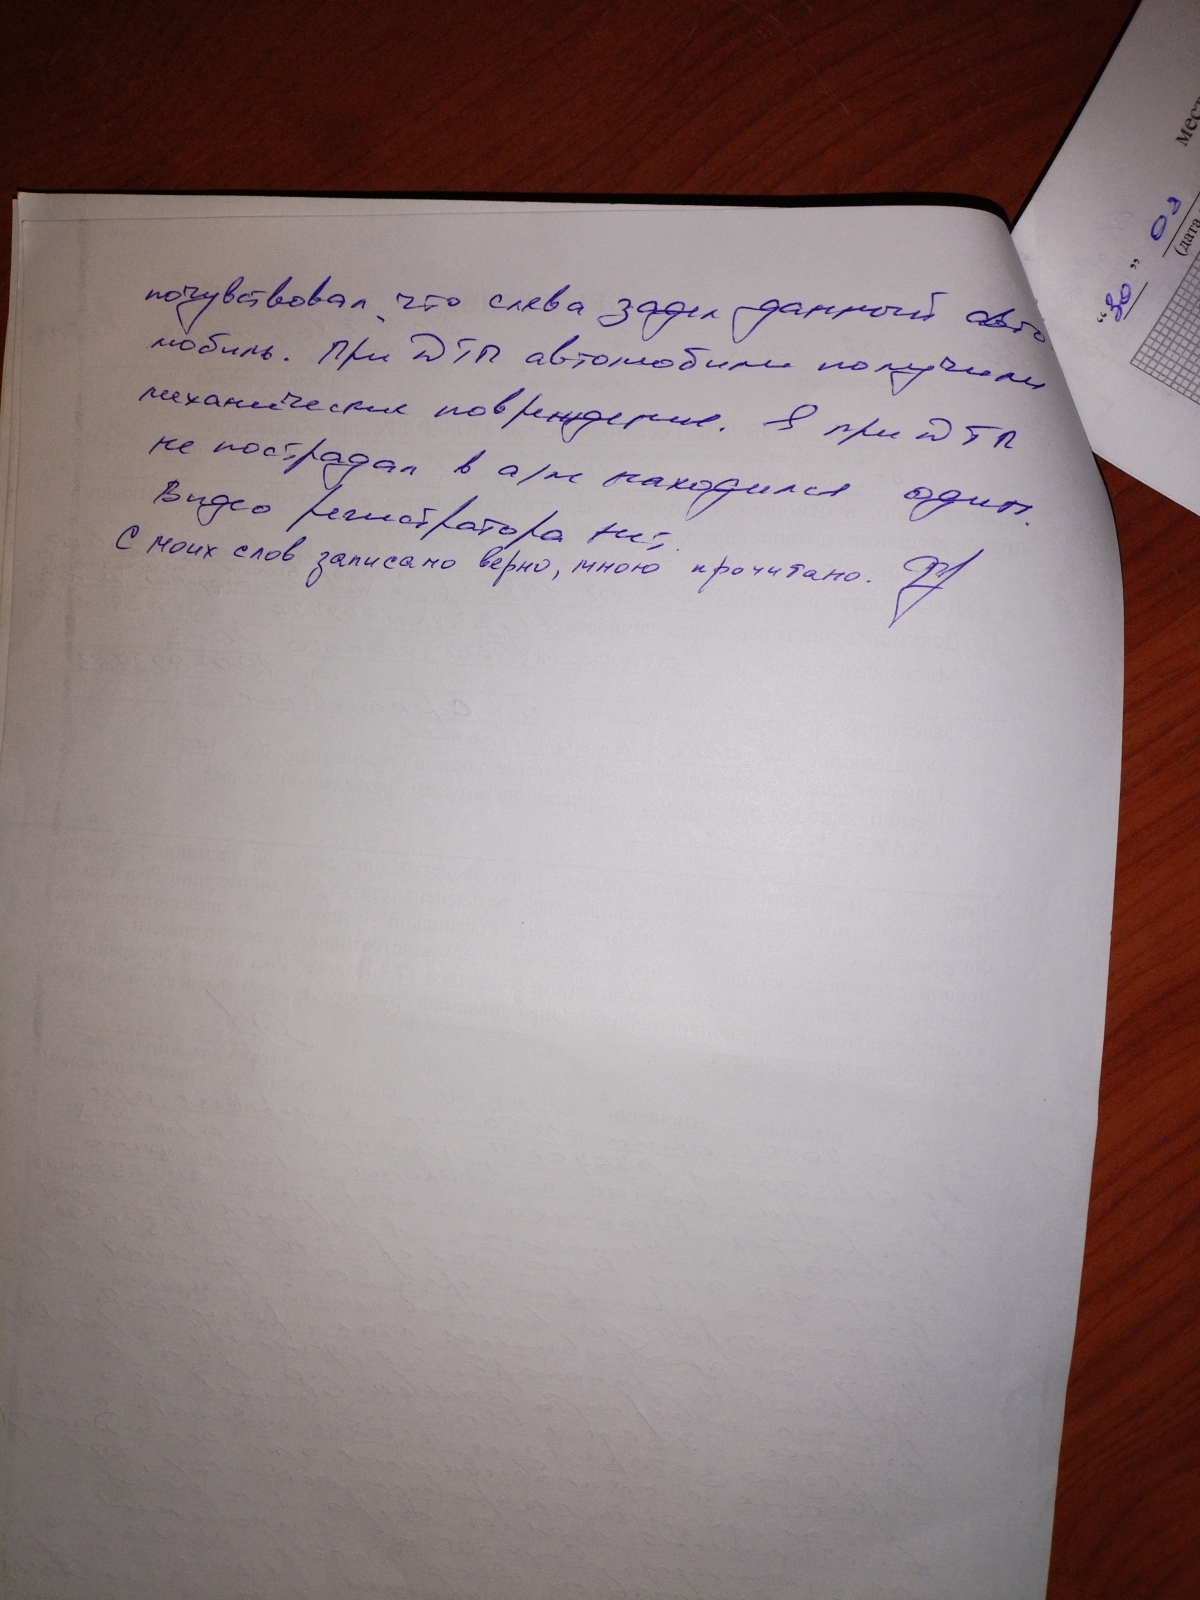 почувствовал, что слева задел данный авто
мобиль. При ДТП автомобили получили
механические повреждения. Я при ДТП
не пострадал в а/м находился один.
Видео регистратора нет.
С моих слов записано верно, мною прочитано.
"30" 09
(дата
мест